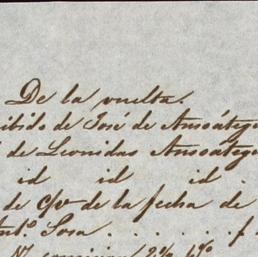 De la vuelta.
ibido de José de Ansoátegu
de Leonidas Ansoátegu
id id id .
de c/v de la fecha de
nt.º Sosa . . . . . f